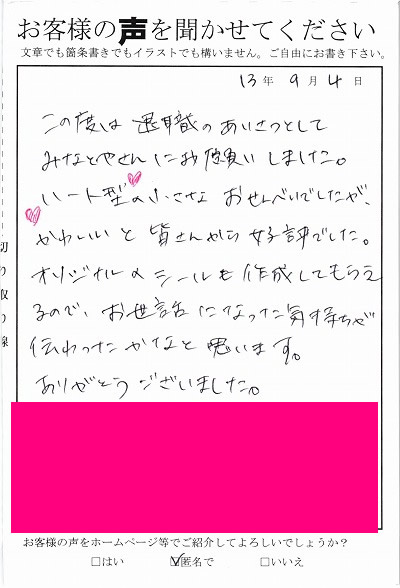 お客様の声を聞かせてください
文章でも箇条書きでもイラストでも構いません。ご自由にお書き下さい。
13年 9月 4日
この度は 退職のあいさつとして
みなとやさんにお願いしました。
ハート型の小さな おせんべいでしたが、
かわいいと 皆さんから 好評でした。
オリジナルのシールも作成してもらえ
るので、お世話になった気持ちが
伝わったかなと思います。
ありがとうございました。
切り取り線
お客様の声をホームページ等でご紹介してよろしいでしょうか？
□はい ☑匿名で □いいえ